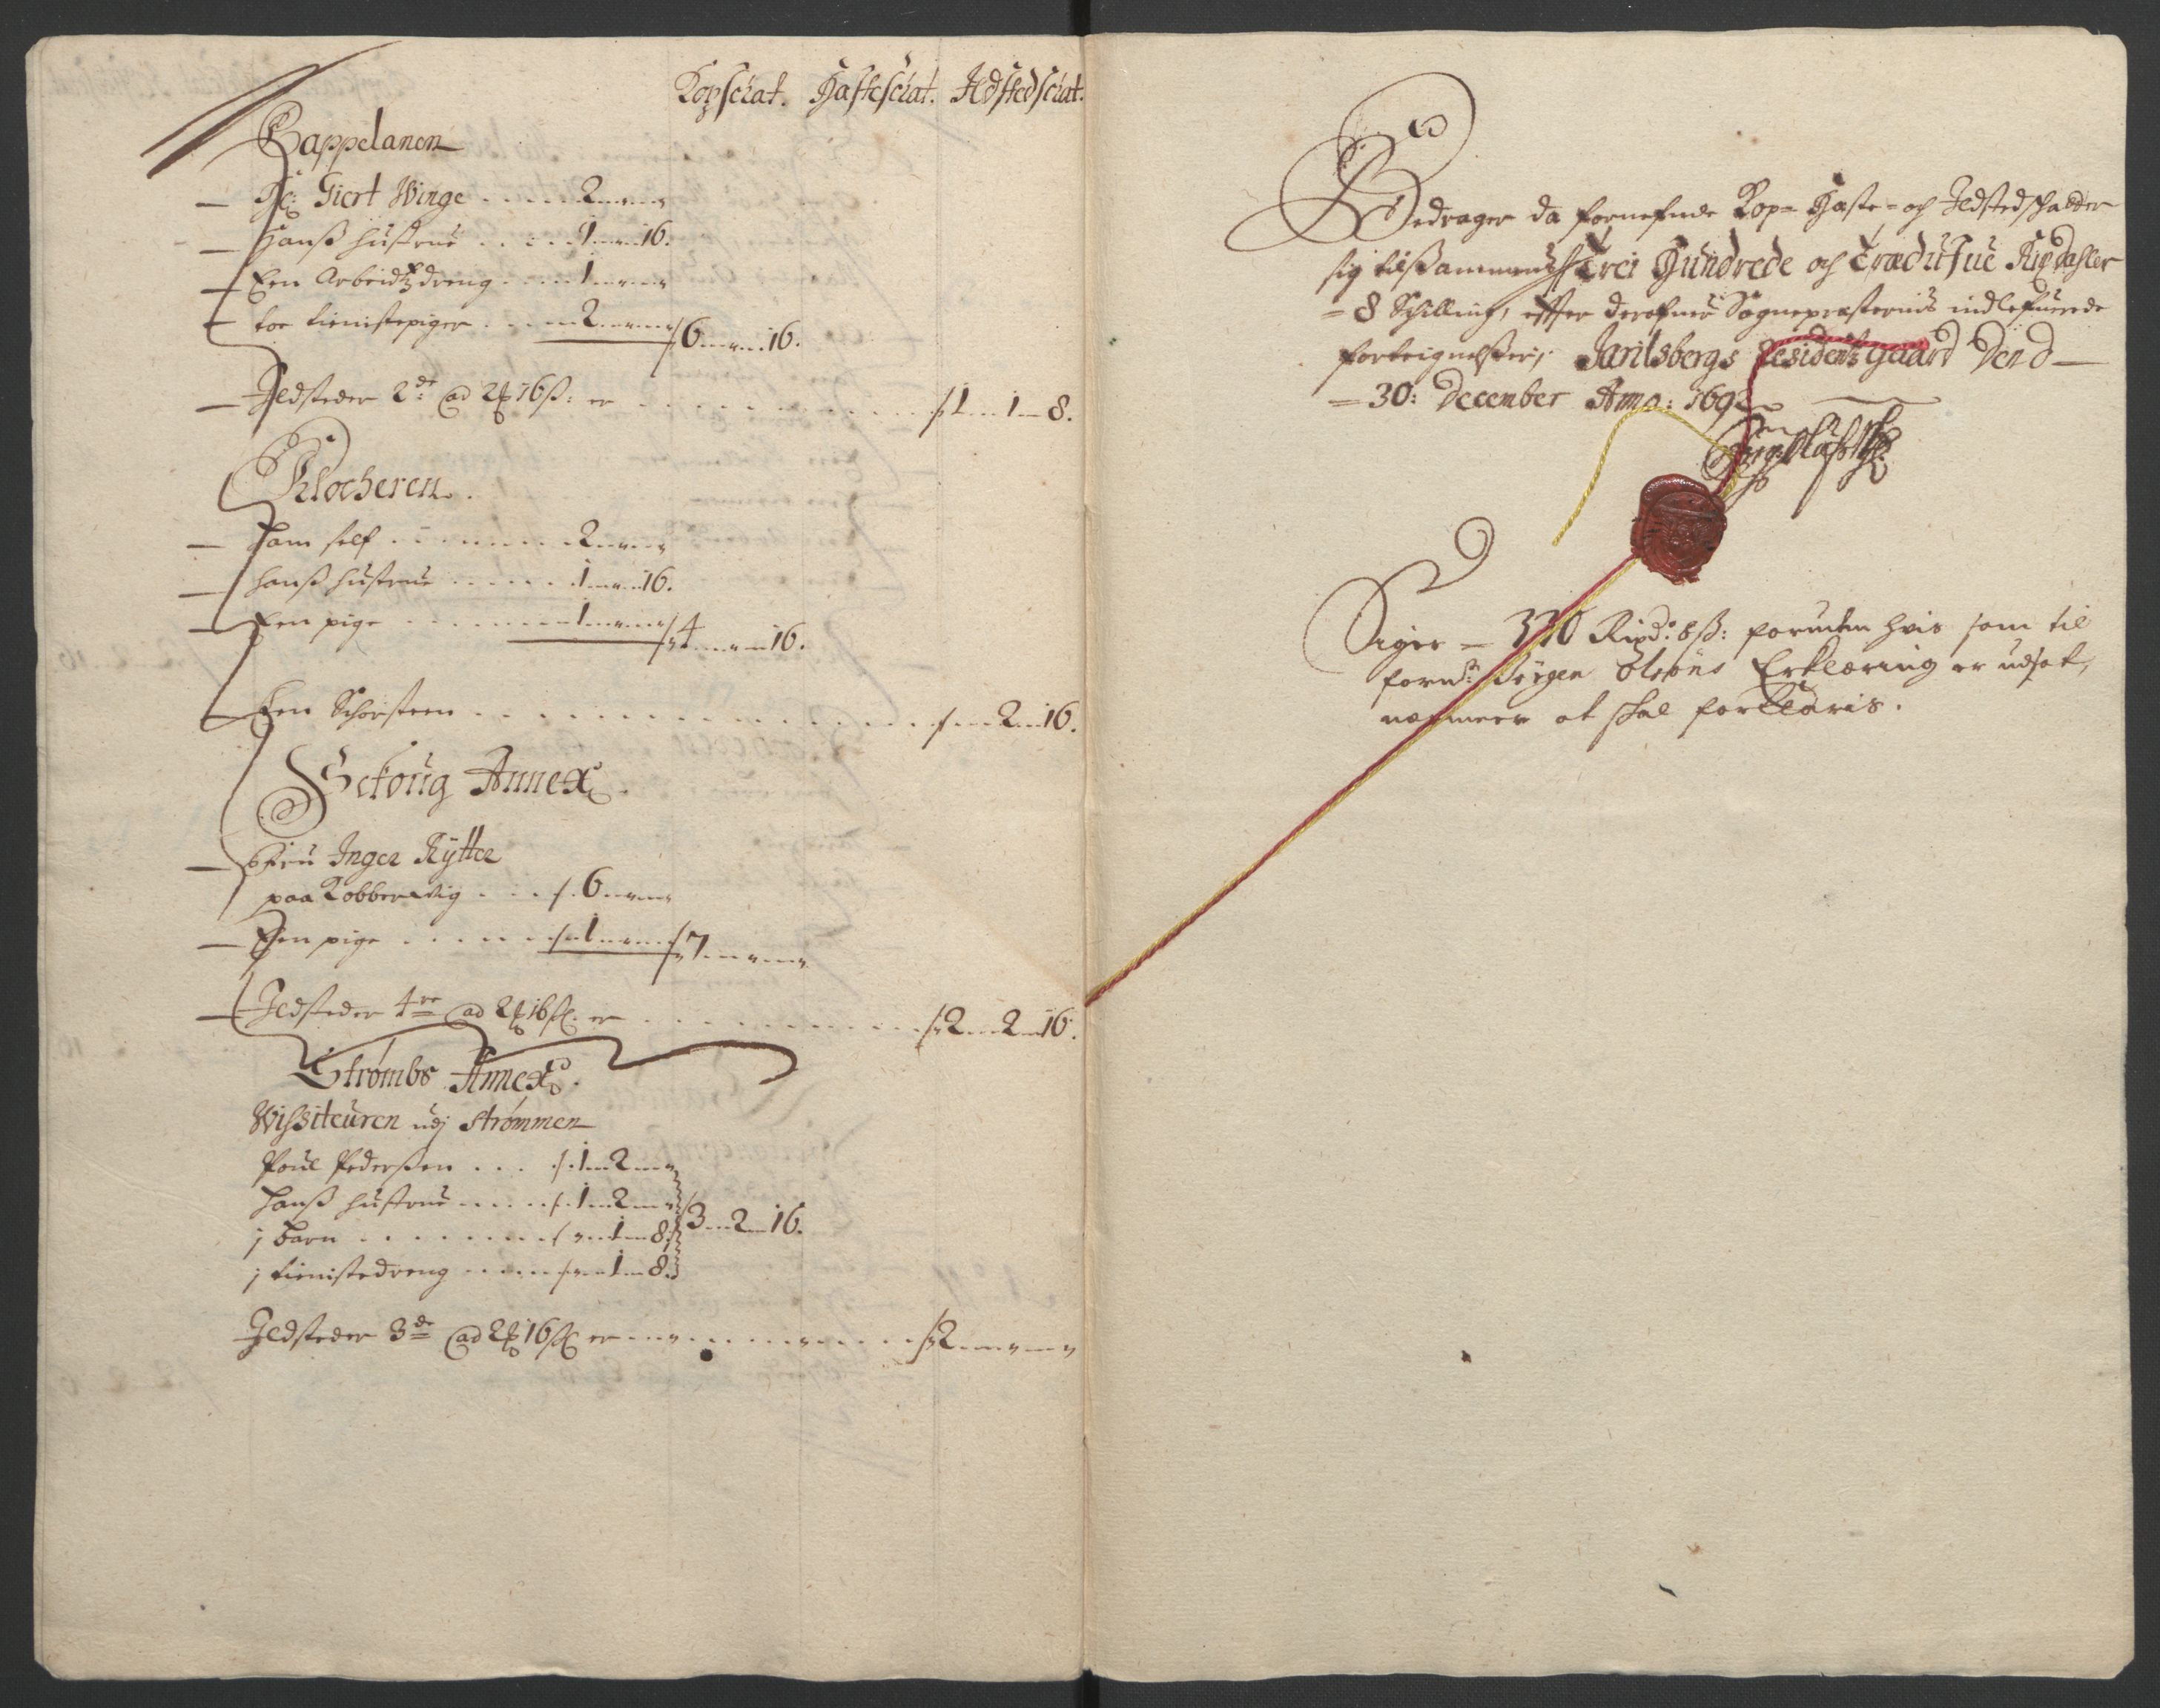 Kopschat. Hæsteschat. Ildstedschat.
Cappelanen
Hr: Giert Winge . . . . . 2
Hanß hustrue . . . . 1 16.
Een Arbeidtzdreng . . . . 1
toe tienistepiger . . . . 2 6 16.
Ildsteder 2de ad 2 16 ß: er . . . . . . 1 1 8.
Klocheren.
Ham self . . . . . . 2
hanß hustrue . . . . . 1 16.
Een pige . . . . . . 1 4 16.
Een Schorsteen . . . . . . . . 2 16.
Schoug Annex.
Fru Inger Rytter
paa Kobberwig . . . 6
Een pige . . . . . 1 7
Ildsteder 4re ad 2 16 ß. er . . . . . . 2 2 16.
Strømbs Annex.
Wissiteuren udj Strømmen
Poul Pederßen . . . 1 2
Hanß hustrue . . . . 1 2 3 2 16.
j barn . . . . . . . 1 8
j tienistedreng . . . . 1 8
Ildsteder 3de ad 2 16 ß er . . . . . . 2
Bedrager da fornefnde Kop- Hæste- och Ildstedschatter
sig tilsammens Trei Hundrede och Trædiffue Rixdahler
= 8 Schilling, effter derofuer Sognepræsternis indlefuerede
forteignelsser, Jarilsbergs Residentz Gaard Den d
= 30: December Anno: 1692
Siger = 330 Rixd: 8 ß: foruden hvis som til
fornt: Jørgen Olsøns Erklæring er udsat,
nermeer at schal forklaris.